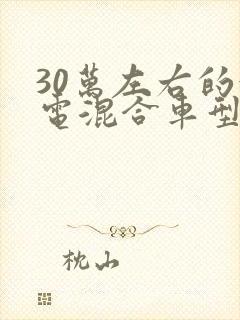 30萬左右的
電混合車型
枕山